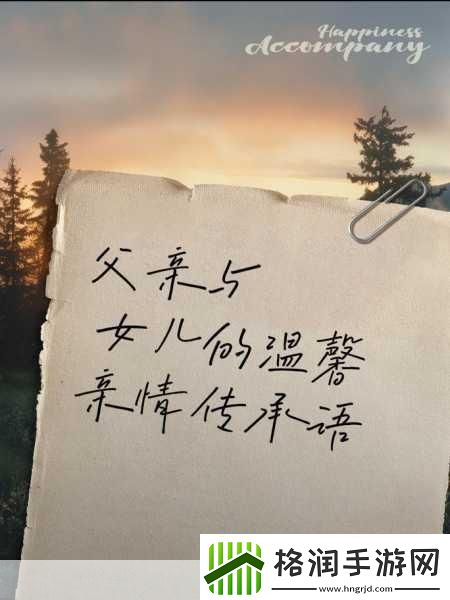 Happiness
Accompany
父亲与
女儿的温馨
亲情传承语
格润手游网
www.hngrjd.com